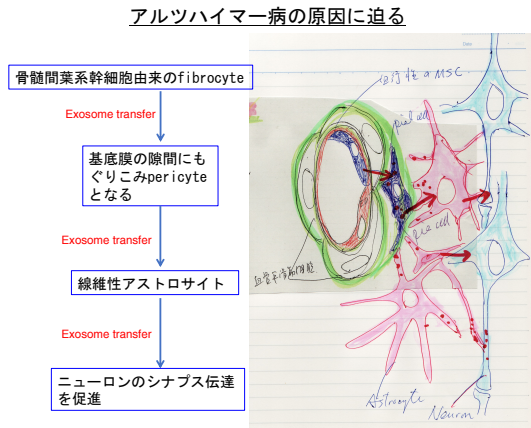 アルツハイマー病の原因に迫る
骨髄間葉系幹細胞由来のfibrocyte
Exosome transfer
基底膜の隙間にも
ぐりこみpericyte
となる
Exosome transfer
線維性アストロサイト
Exosome transfer
ニューロンのシナプス伝達
を促進
MSC
pial cell
pia cell
血管平滑筋細胞
Astrocyte
Neuron